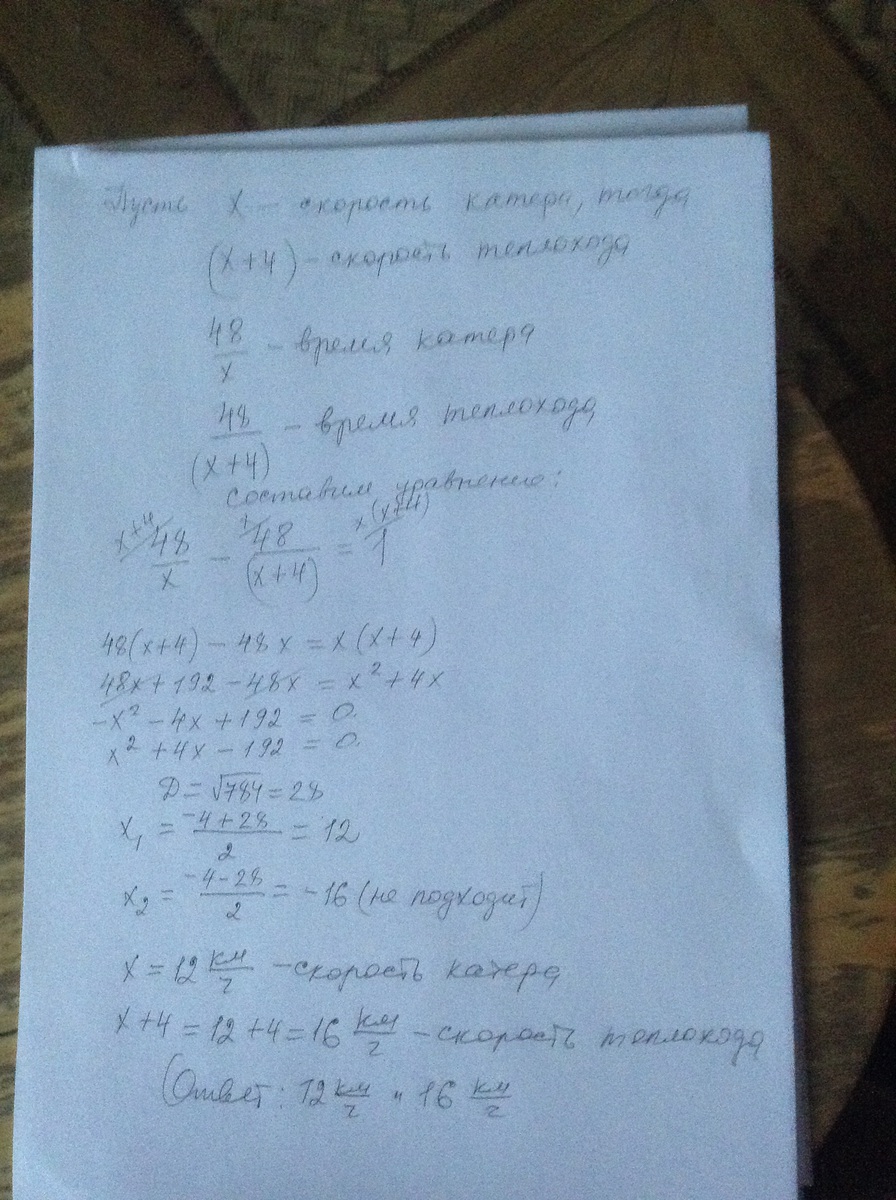 Пусть x – скорость катера, тогда
(x+4) – скорость теплохода
48/x – время катера
48/(x+4) – время теплохода
составим уравнение:
x+4/ 48/x – 1/ 48/(x+4) = x(x+4)/ 1
48(x+4) – 48x = x(x+4)
48x + 192 – 48x = x² + 4x
-x² – 4x + 192 = 0.
x² + 4x – 192 = 0.
D = √784 = 28
x₁ = (-4+28)/2 = 12
x₂ = (-4-28)/2 = -16 (не подходит)
x = 12 км/ч – скорость катера
x+4 = 12+4 = 16 км/ч – скорость теплохода
Ответ: 12 км/ч и 16 км/ч